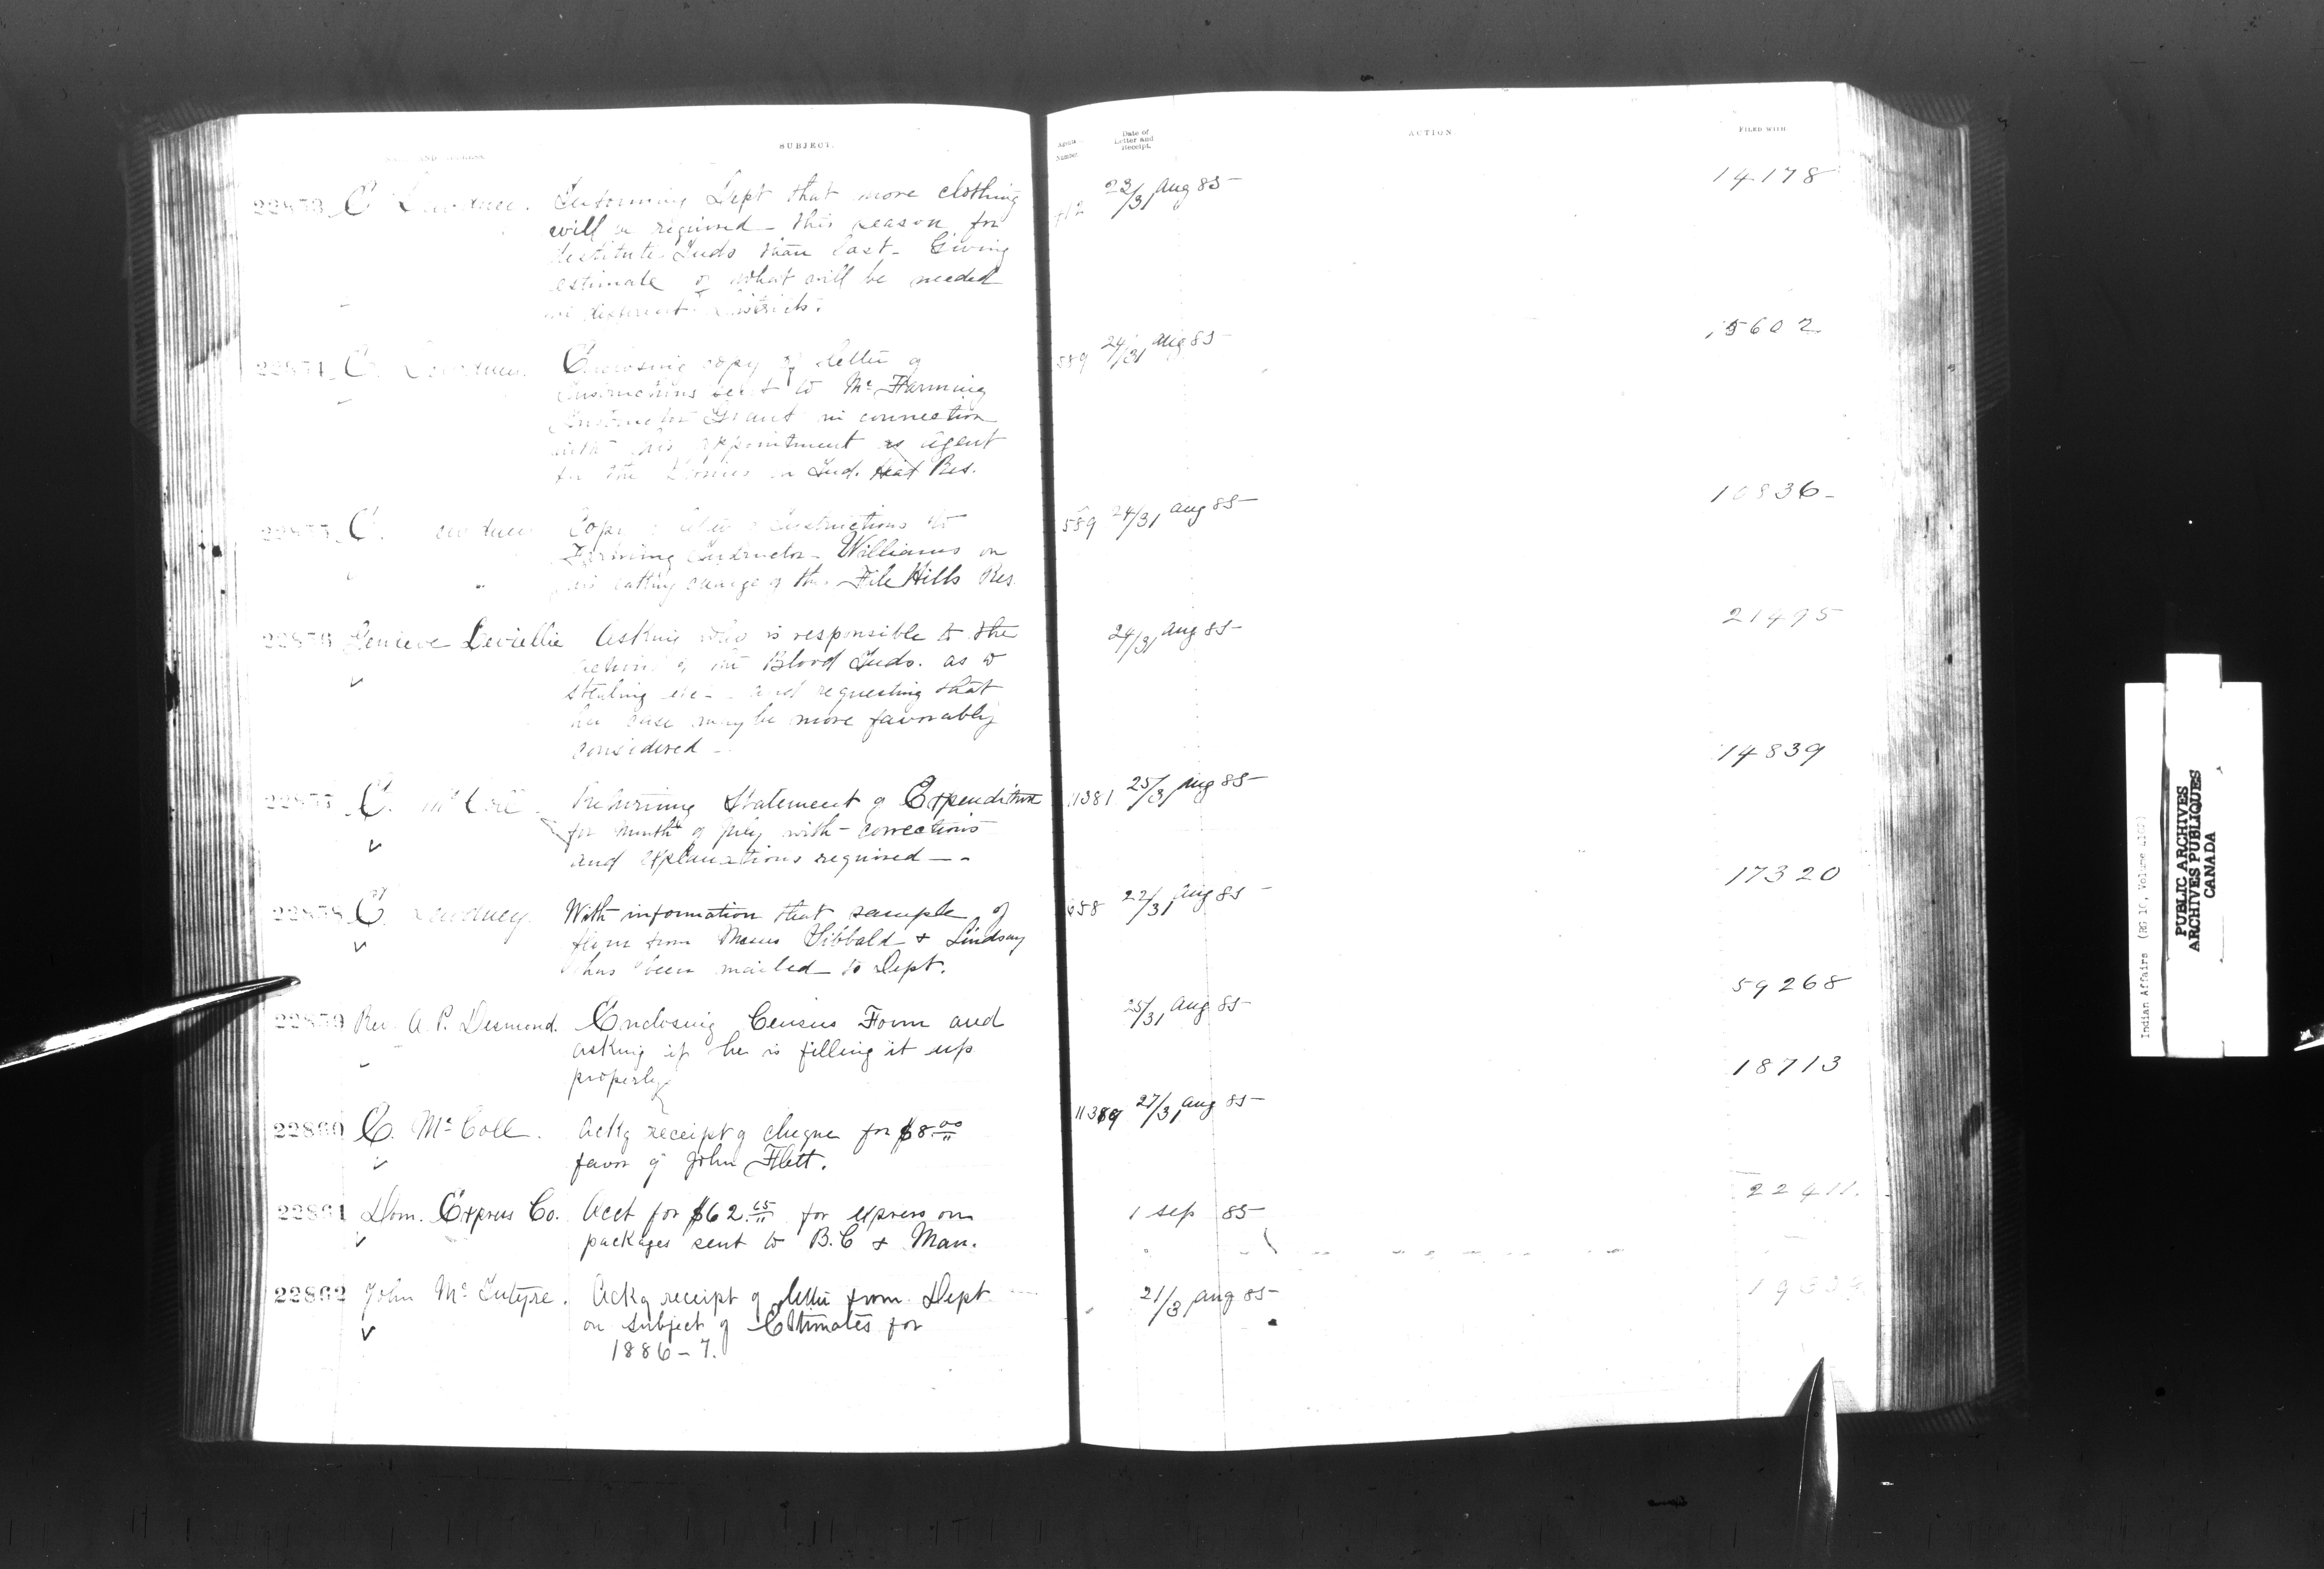 AND
SUBJECT.
Number
Date of
Letter and
Receipt.
ACTION.
FILED WITH
22853 E Dewdney. Informing Dept that more clothing
will be required this season for
destitute Inds than last. Giving
estimate of what will be needed
in different Districts.
23/31 Aug 85
14178
22854 E. Dewdney. Enclosing copy of letter of
instructions sent to Mr Farming
Instructor Grant in connection
with his appointment as Agent
for the Ind. Res.
589 24/31 Aug 85
15602
22855 E. Dewdney Copy of letter of instructions to
Farming Instructor Williams on
his taking charge of the File Hills Res.
589 24/31 Aug 85
10836
22856 Asking who is responsible to the
actions of the Blood Inds. as to
stealing etc and requesting that
her case may be more favorably
considered
24/31 Aug 85
21495
22857 E. McColl Returning Statement of Expenditure
for month of July with corrections
and explanations required
1381 25/31 Aug 85
14839
22858 E. Dewdney. With information that sample of
flour from Messrs & Lindsay
has been mailed to Dept.
658 22/31 Aug 85
17320
22859 Rev. A. P. Desmond. Enclosing Census Form and
asking if he is filling it up
properly
25/31 Aug 85
59268
22860 E. McColl. Ackg receipt of cheque for $8.00
favor of John Flett.
27/31 Aug 85
18713
22861 Dom. Express Co. Acct for $62.65 for express on
packages sent to B.C & Man.
1 Sep 85
22411.
22862 John McIntyre. Ackg receipt of letter from Dept
on subject of Estimates for
1886-7.
21/3 Aug 85
Indian Affairs (RG 10, Volume
PUBLIC ARCHIVES
ARCHIVES PUBLIQUES
CANADA